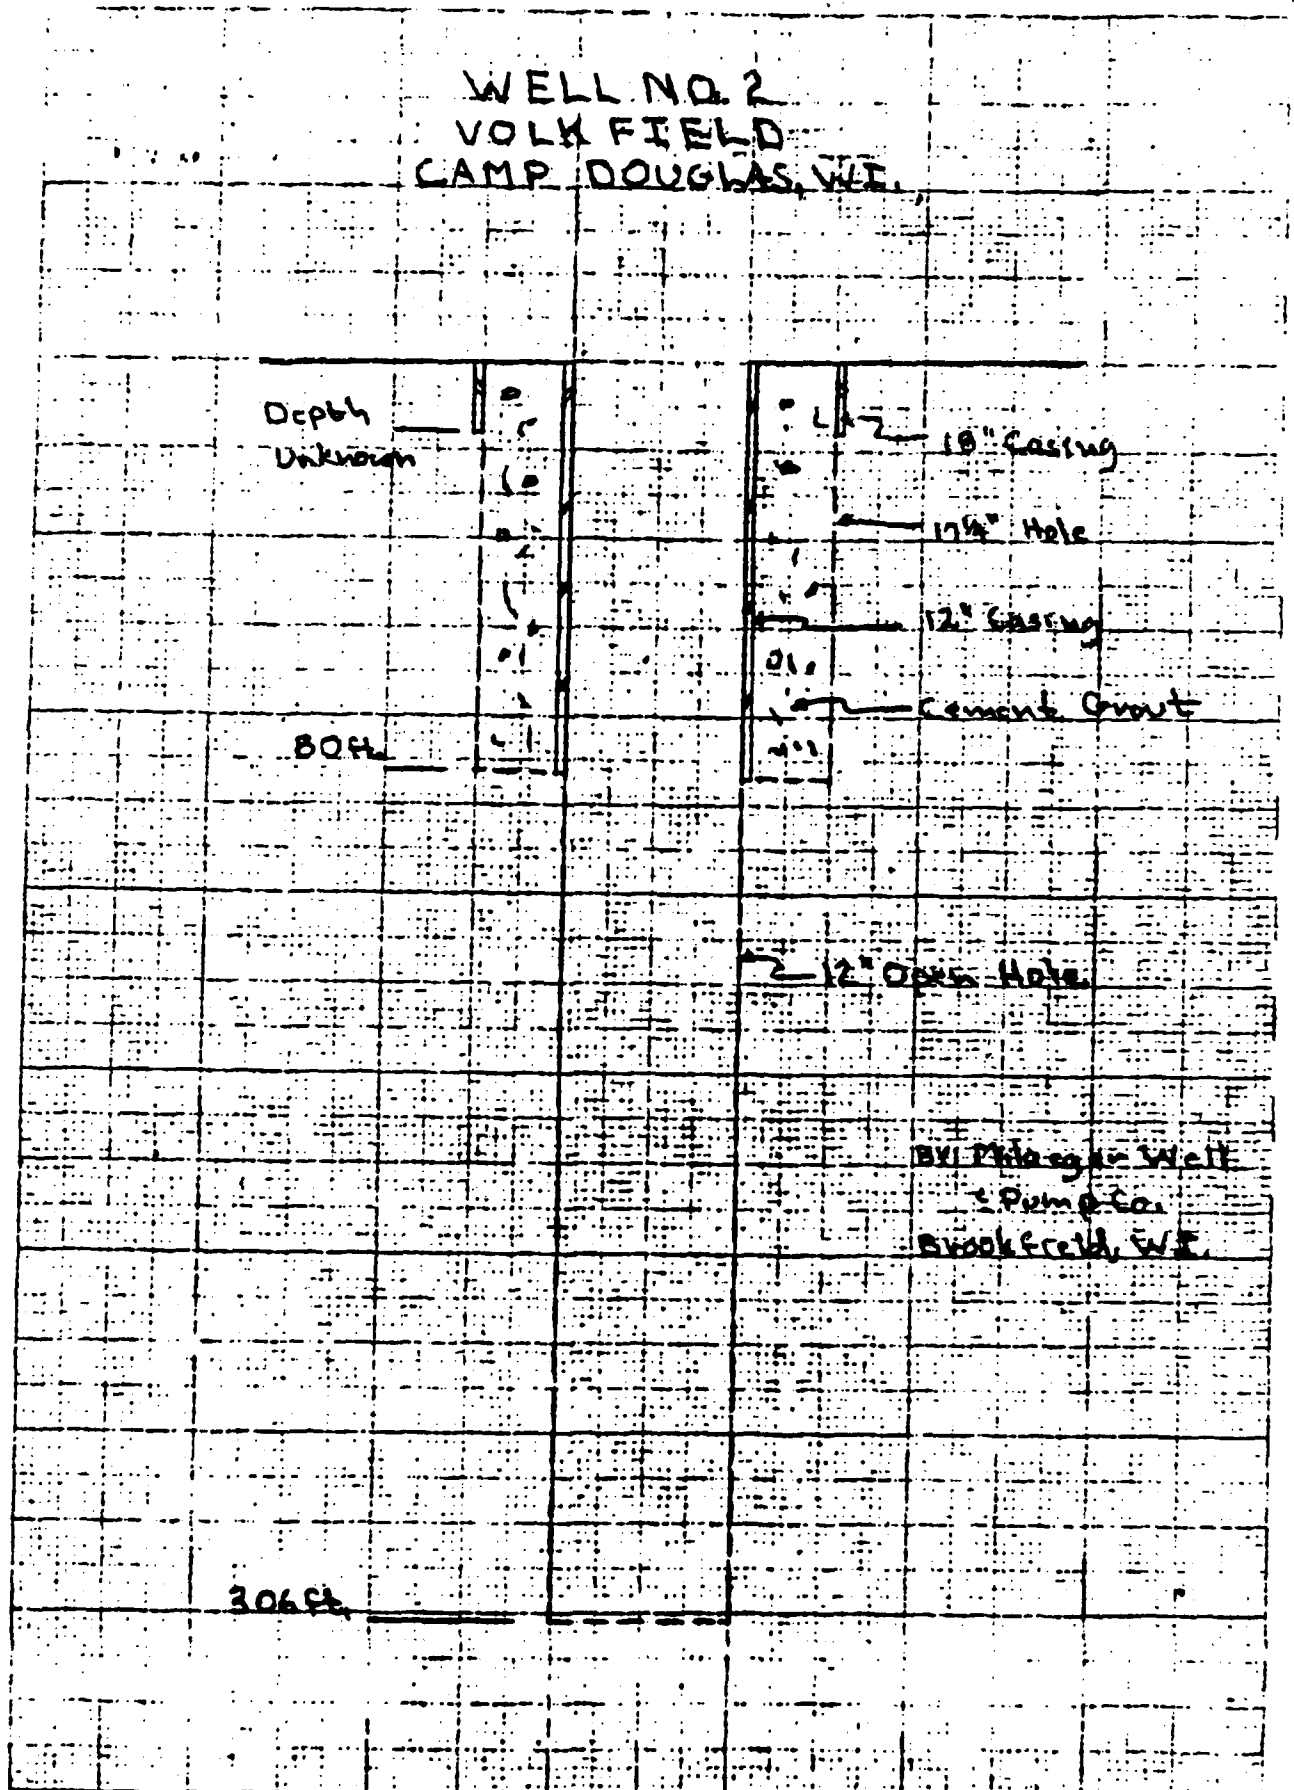 WELL NO. 2
VOLK FIELD
CAMP DOUGLAS, WI.
Depth
Unknown
18" Casing
17¼" Hole
12" Casing
Cement Grout
80 ft.
12" Open Hole
BY: Milaeger Well
& Pump Co.
Brookfield, WI.
306 ft.